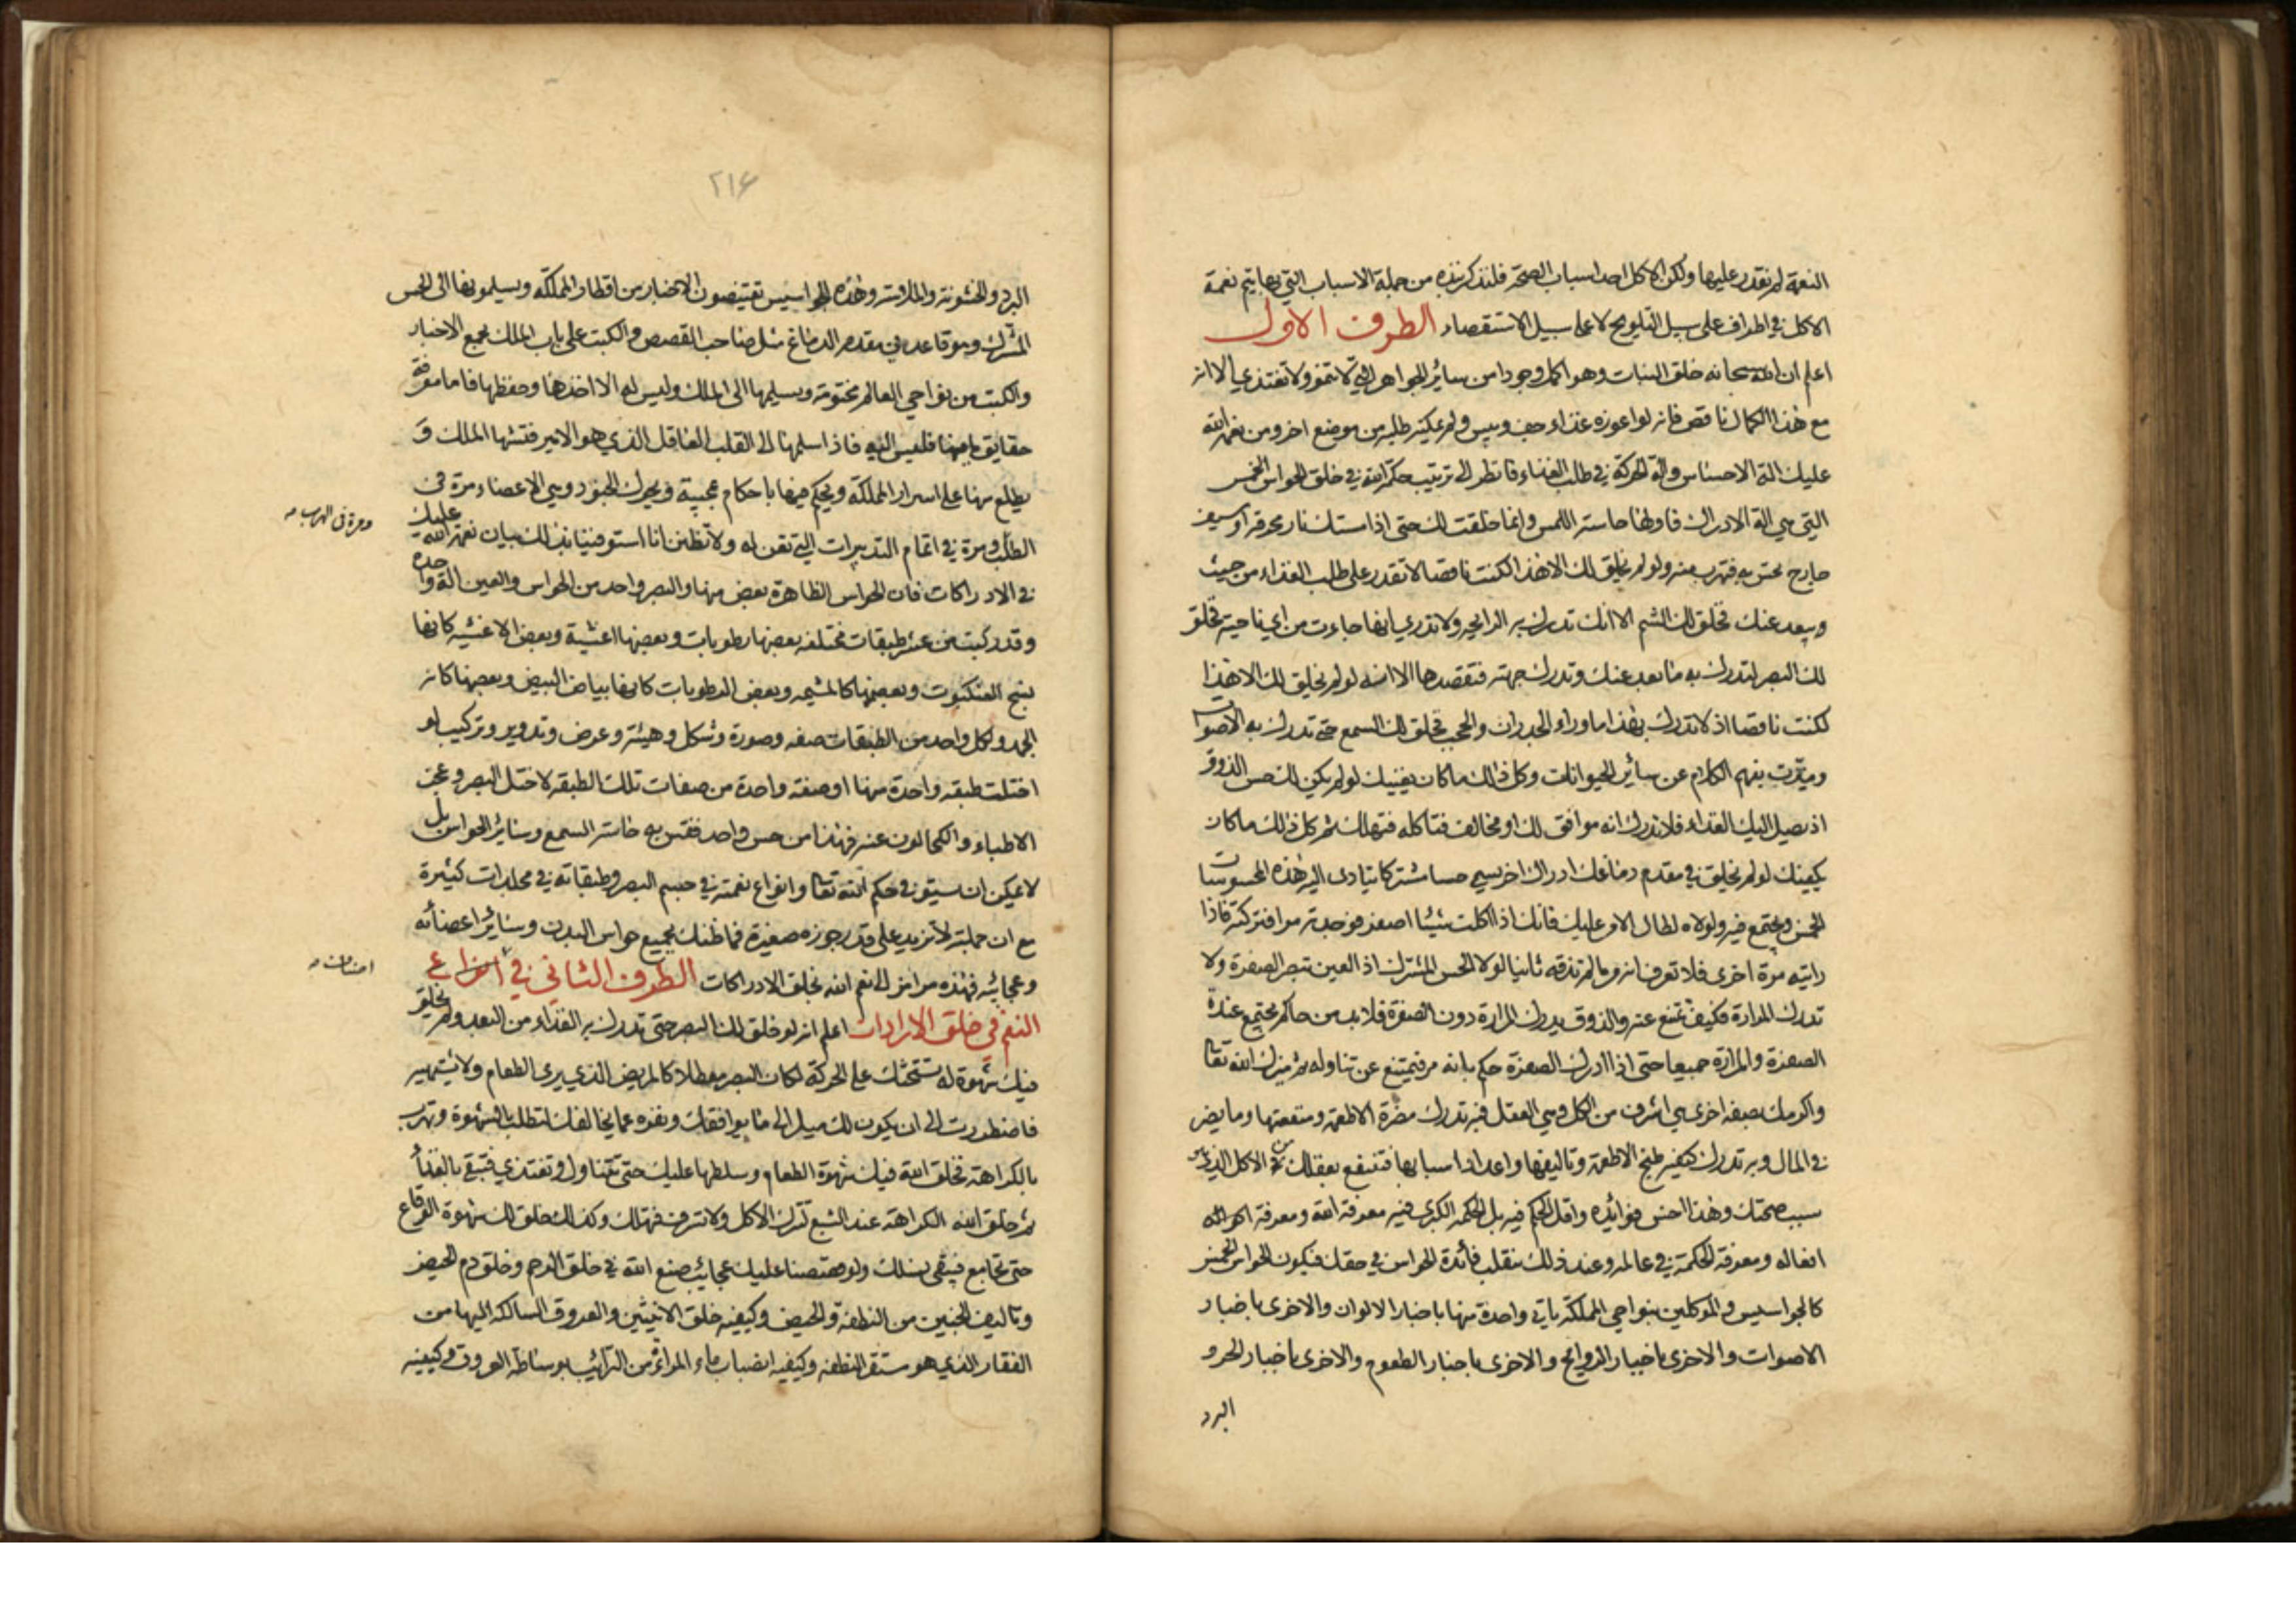 النعمة لم نقدر عليها ولكن الاكل احد اسباب الصحة فلنذكر نبذه من جملة الاسباب التي بها يتم نعمة
الاكل في اطراف على سبيل التلويح لا على سبيل الاستقصاء الطرف الاول
اعلم ان الله سبحانه خلق النبات وهو اكمل وجودا من سائر الجواهر التي لا تنمو ولا تغتذي الا انه
مع هذا الكمال ناقص فانه لو اعوزه غذاء جف ويبس ولم يمكنه طلبه من موضع اخر ومن نعم الله
عليك الة الاحساس والة الحركة في طلب الغذاء فانظر الى ترتيب حكمة الله في خلق الحواس الخمس
التي هي الة الادراك فاولها حاسة اللمس وانما خلقت لك حتى اذا مستك نار محرقه او سيف
جارح تحس به فتهرب منه ولو لم يخلق لك الا هذا لكنت ناقصا لا تقدر على طلب الغذاء من حيث
يبعد عنك فخلق لك الشم الا انك تدرك به الرايحه ولا تدري انها جاءت من اي ناحية فخلق
لك البصر لتدرك به ما بعد عنك وتدرك جهته فتقصدها الا انه لو لم يخلق لك الا هذا
لكنت ناقصا اذ لا تدرك بهذا ما وراء الجدران والحجب فخلق لك السمع حتى تدرك به الاصوات
وميزت بفهم الكلام عن سائر الحيوانات وكل ذلك ما كان يغنيك لو لم يكن لك حس الذوق
اذ يصل اليك الغذاء فلا تدرك انه موافق لك او مخالف فتاكله فتهلك ثم كل ذلك ما كان
يكفيك لو لم يخلق في مقدم دماغك ادراك اخر يسمى حسا مشتركا تتادى اليه هذه المحسوسات
الخمس ويجتمع فيه ولولاه لطال الامر عليك فانك اذا اكلت شيئا اصفر فوجدته مرا فتركته فاذا
رايته مرة اخرى فلا تعرف انه مر ما لم تذقه ثانيا لولا الحس المشترك اذ العين تبصر الصفرة ولا
تدرك المرارة فكيف تمتنع عنه والذوق يدرك المرارة دون الصفرة فلا بد من حاكم يجتمع عنده
الصفرة والمرارة جميعا حتى اذا ادرك الصفرة حكم بانه مر فيمتنع عن تناوله ثم ميزك الله تعا
واكرمك بصفه اخرى هي اشرف من الكل وهي العقل فبه تدرك مضرة الاطعمة ومنفعتها وما يضر
في المال وبه تدرك كيفيه طبخ الاطعمة وتاليفها واعداد اسبابها فتنتفع بعقلك في الاكل الذي هو
سبب صحتك وهذا اخس فوائده واقل الحكم فيه بل الحكمه الكبرى فيه معرفة الله ومعرفة
افعاله ومعرفة الحكمة في عالمه وعند ذلك ينقلب فائدة الحواس في حقك فيكون الحواس الخمس
كالجواسيس والموكلين بنواحي المملكة ياتي واحدة منها باخبار الالوان والاخرى باخبار
الاصوات والاخرى باخبار الروائح والاخرى باخبار الطعوم والاخرى باخبار الحر و
البرد
٢١۶
البرد والخشونة والملاسة وهذه الجواسيس يقتنصون الاخبار من اقطار المملكة ويسلمونها الى الحس
المشترك وهو قاعد في مقدم الدماغ مثل صاحب القصص والكتب على باب الملك يجمع الاخبار
والكتب من نواحي العالم مختومة ويسلمها الى الملك وليس له الا اخذها وحفظها فاما معرفة
حقايق ما فيها فليس اليه فاذا سلمها الى القلب العاقل الذي هو الامير فتشها الملك و
يطلع منها على اسرار المملكة ويحكم فيها باحكام عجيبة ويحرك الجنود وهي الاعضاء مرة في
الطلب ومرة في اتمام التدبيرات التي تعن له ولا تظنن انا استوفينا بذلك بيان نعمة الله عليك
ومرة في الهرب
في الادراكات فان الحواس الظاهرة بعض منها والبصر واحد من الحواس والعين الة واحدة
وقد ركبت من عشر طبقات مختلفه بعضها رطوبات وبعضها اغشية وبعض الاغشيه كانها
نسج العنكبوت وبعضها كالمشيمه وبعض الرطوبات كانها بياض البيض وبعضها كانه
الجمد ولكل واحد من الطبقات صفه وصورة وشكل وهيئة وعرض وتدوير وتركيب لو
اختلت طبقه واحدة منها او صفة واحدة من صفات تلك الطبقه لاختل البصر وعجز
الاطباء والكحالون عنه فهذا من حس واحد فقس به حاسة السمع وسائر الحواس بل
لا يمكن ان يستوفى حكم الله تعا وانواع نعمته في جسم البصر وطبقاته في مجلدات كثيرة
مع ان جملته لا تزيد على قدر جوزه صغيرة فما ظنك بجميع حواس البدن وسائر اعضائه
وعجائبه فهذه مرامز الى نعم الله بخلق الادراكات الطرف الثاني في انواع
النعم في خلق الارادات اعلم انه لو خلق لك البصر حتى تدرك به الغذاء من البعد ولم يخلق
فيك شهوة له تستحثك على الحركة لكان البصر معطلا كالمريض الذي يرى الطعام ولا يشتهيه
فاضطررت الى ان يكون لك ميل الى ما يوافقك ونفره عما يخالفك لتطلب بالشهوة وتهرب
بالكراهة فخلق الله فيك شهوة الطعام وسلطها عليك حتى تتناول وتغتذي فتبقى بالغذا
ثم خلق الله الكراهة عند الشبع لترك الاكل ولا تسرف فتهلك وكذلك خلق لك شهوة الوقاع
حتى تجامع فيبقى نسلك ولو قصصنا عليك عجائب صنع الله في خلق الرحم وخلق دم الحيض
وتاليف الجنين من النطفة والحيض وكيفيه خلق الانثيين والعروق السالكه اليها من
الفقار الذي هو مستقر النطفه وكيفيه انصباب ماء المراة من الترائب بوساطة العروق وكيفيه